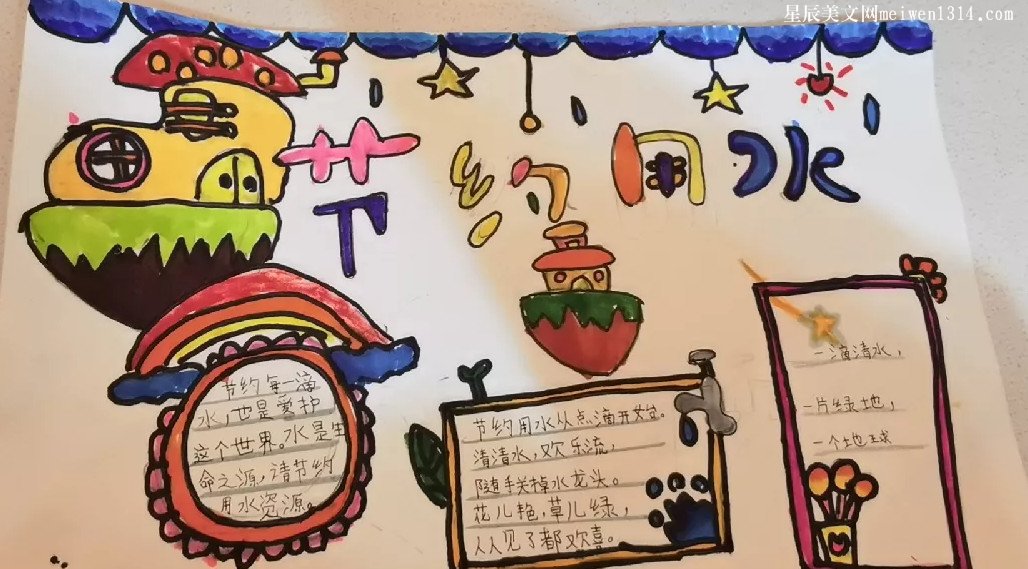 星辰美文网meiwen1314.com
节约用水
节约每一滴
水,也是爱护
这个世界。水是生
命之源,请节约
用水资源。
节约用水从点滴开始。
清清水,欢乐流,
随手关掉水龙头。
花儿艳,草儿绿,
人人见了都欢喜。
一滴清水,
一片绿地,
一个地球